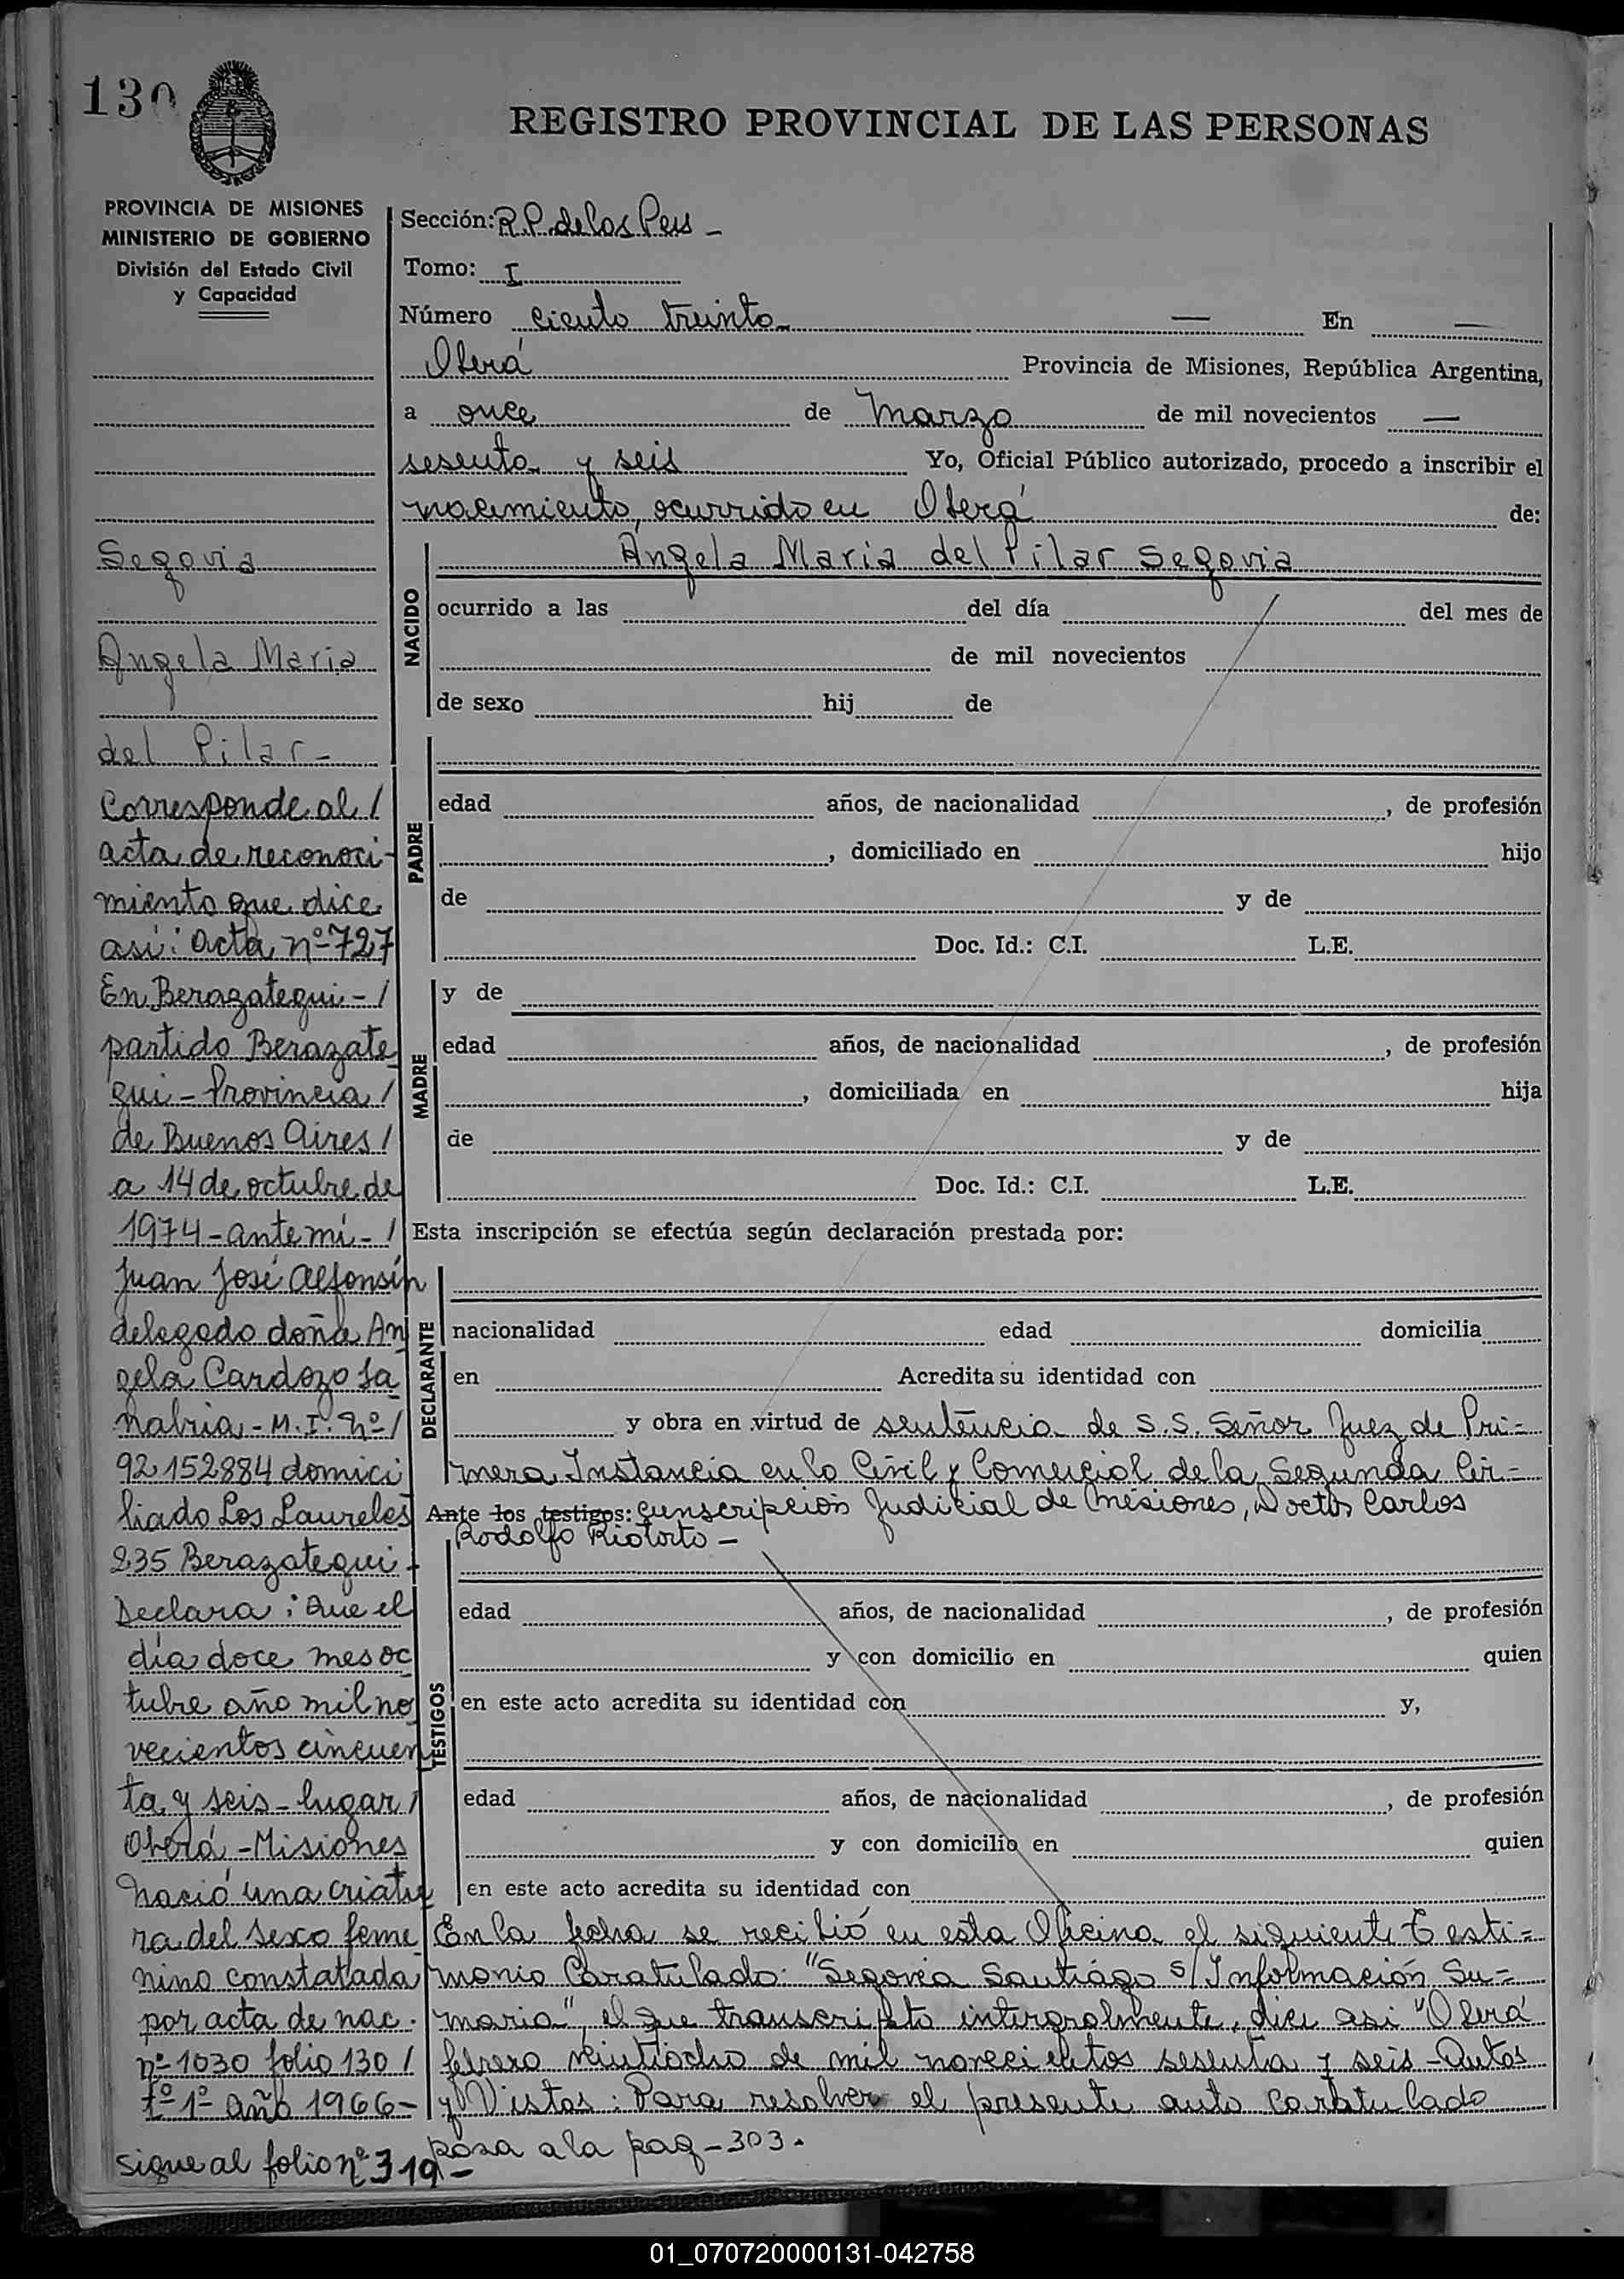 130
REGISTRO PROVINCIAL DE LAS PERSONAS
PROVINCIA DE MISIONES
MINISTERIO DE GOBIERNO
División del Estado Civil
y Capacidad
Segovia
Angela Maria
del Pilar -
Corresponde al /
acta de reconoci-
miento que dice
así: acta nº 727
En Berazategui - /
partido Berazate
gui - Provincia /
de Buenos Aires /
a 14 de octubre de
1974 - ante mi - /
Juan José Alfonsín
delegado doña An
gela Cardozo Sa
nabria - M.I. nº /
92152884 domici
liado Los Laureles
235 Berazategui -
Declara: Que el
día doce mes oc
tubre año mil no
vecientos cincuen
ta y seis - lugar /
Oberá - Misiones
nació una criatu
ra del sexo feme
nino constatada
por acta de nac.
nº 1030 folio 130 /
tº 1º año 1966 -
sigue al folio nº 319 -
Sección: R.P. de las Pers -
Tomo: I
Número ciento treinta — En —
Oberá Provincia de Misiones, República Argentina,
a once de Marzo de mil novecientos —
sesenta y seis Yo, Oficial Público autorizado, procedo a inscribir el
nacimiento, ocurrido en Oberá de:
NACIDO
Angela Maria del Pilar Segovia
ocurrido a las del día del mes de
de mil novecientos
de sexo hij de
PADRE
edad años, de nacionalidad , de profesión
, domiciliado en hijo
de y de
Doc. Id.: C.I. L.E.
MADRE
y de
edad años, de nacionalidad , de profesión
, domiciliada en hija
de y de
Doc. Id.: C.I. L.E.
Esta inscripción se efectúa según declaración prestada por:
DECLARANTE
nacionalidad edad domicilia
en Acredita su identidad con
y obra en virtud de sentencia de S.S. Señor Juez de Pri=
mera Instancia en lo Civil y Comercial de la Segunda Cir=
Ante los testigos: cunscripción Judicial de Misiones, Doctor Carlos
Rodolfo Riotorto -
TESTIGOS
edad años, de nacionalidad , de profesión
y con domicilio en quien
en este acto acredita su identidad con y,
edad años, de nacionalidad , de profesión
y con domicilio en quien
en este acto acredita su identidad con
En la fecha se recibió en esta Oficina el siguiente Testi=
monio Caratulado: "Segovia Santiago s/ Información Su=
maria", el que transcripto integralmente, dice asi "Oberá
febrero veintiocho de mil novecientos sesenta y seis - Autos
y Vistos: Para resolver el presente auto caratulado
pasa a la pag - 303.
01_070720000131-042758